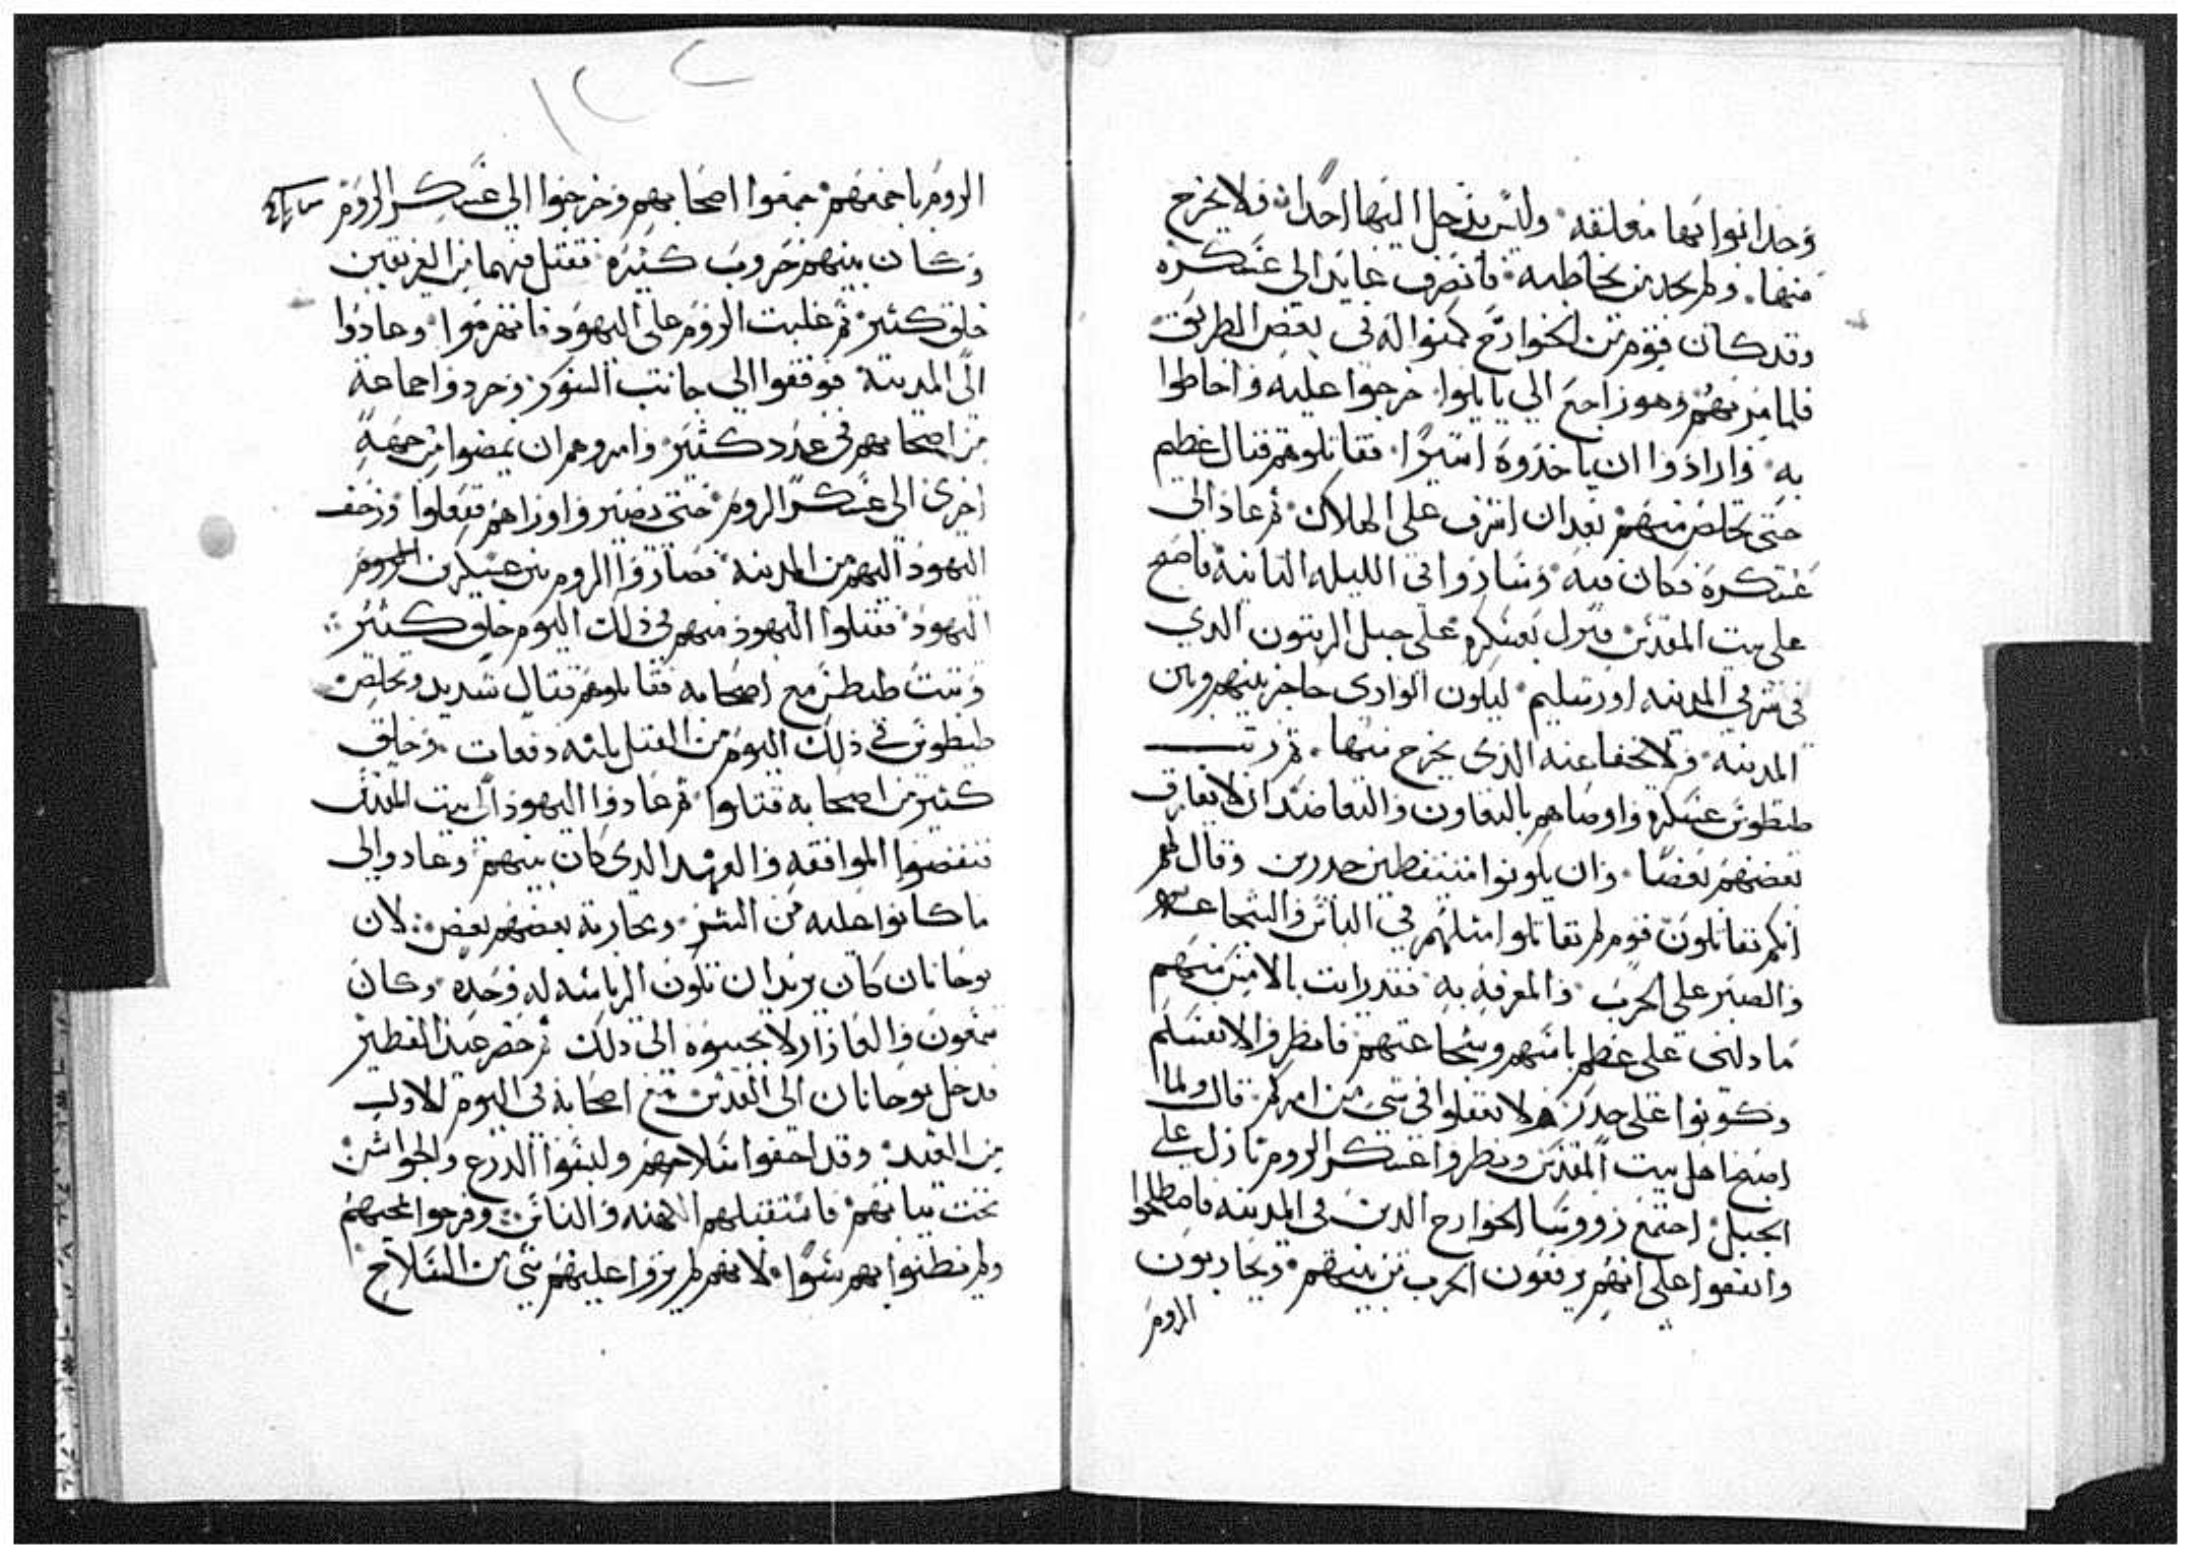 وجد ابوابها مغلقه وليس يدخل اليها احدا فلا يخرج
منها ولم يجد من يخاطبه فانصرف عايدا الى عسكره
وقد كان قوم من الخوارج كمنوا له في بعض الطريق
فلما مر بهم وهو راجع الي يايلوا خرجوا عليه واحاطوا
به وارادوا ان ياخذوه اسيرا فقاتلوهم قتال عظيم
حتى تخلص منهم بعد ان اشرف على الهلاك ثم عاد الى
عسكره فكان فيه وساروا في الليله الثانية فاصبح
على بيت المقدس فنزل بعسكره على جبل الزيتون الدي
في شرقي المدينه اورشليم ليكون الوادى حاجز بينهم وبين
المدينه ولا يخفا عنه الذى يخرج منها ثم رتب
طيطوس عسكره واوصاهم بالتعاون والتعاضد ان لا يفارق
بعضهم بعضا وان يكونوا متيقظين حدرين وقال لهم
انكم تقاتلون قوم لم تقاتلوا مثلهم في الباس والشجاعه
والصبر على الحرب والمعرفه به فقد رايت بالامس منهم
ما دلنى على عظم باسهم وشجاعتهم فانظروا لانفسكم
وكونوا على حدر ولا تغفلوا في شي من امركم قال ولما
اصبح اهل بيت المقدس ونظروا عسكر الروم نازل على
الجبل اجتمع روسا الخوارج الدين في المدينه فاصطلحوا
واتفقوا على انهم يرفعون الحرب من بينهم ويحاربون
الروم
١٢٢
الروم باجمعهم جمعوا اصحابهم وخرجوا الى عسكر الروم
وكان بينهم حروب كثيره فقتل فيهما من الفريقين
خلق كثير ثم غلبت الروم على اليهود فانهزموا وعادوا
الى المدينة فوقفوا الى جانب السور وجردوا جماعة
من اصحابهم في عدد كثير وامروهم ان يمضوا من جهة
اخرى الى عسكر الروم حتى يصيروا وراهم ففعلوا وزحف
اليهود اليهم من المدينه فصاروا الروم بين عسكرين
اليهود فقتلوا اليهود منهم في ذلك اليوم خلق كثير
وثبت طيطس مع اصحابه فقاتلوهم قتال شديد وتخلص
طيطوس في ذلك اليوم من القتل ثلثه دفعات وخلق
كثير من اصحابه قتلوا ثم عادوا اليهود الى بيت المقدس
فنقضوا الموافقه والعهد الدى كان بينهم وعادوا الى
ما كانوا عليه من الشر ومحاربة بعضهم بعض لان
يوحانان كان يريد ان تكون الرياسه له وحده وكان
شمعون والعازار لا يجيبوه الى دلك ثم حضر عيد الفطير
فدخل يوحانان الى القدس مع اصحابه في اليوم الاول
من العيد وقد اخفوا سلاحهم ولبسوا الدرع والجواشن
تحت ثيابهم فاستقبلهم الكهنه والناس وفرحوا بمجيهم
ولم يظنوا بهم سوا لانهم لم يروا عليهم شي من السلاح